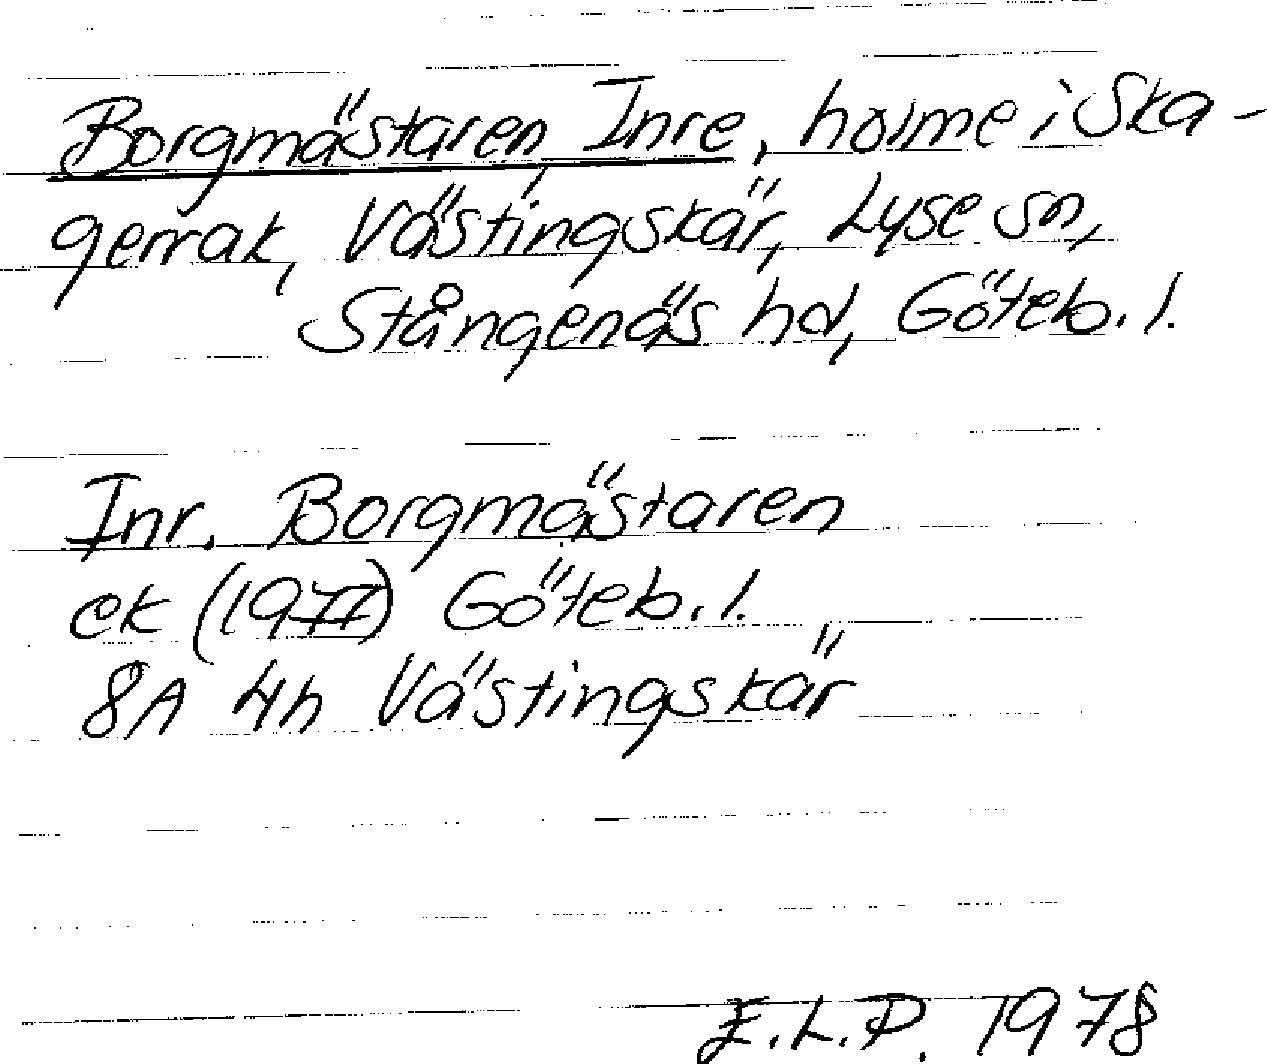 Borgmästaren, Inre, holme i Ska-
gerrak, Västingskär, Lyse sn,
Stångenäs hd, Göteb. l.
Inr. Borgmästaren
ek (1977) Göteb. l.
8A 4h Västingskär
E.L.P. 1978